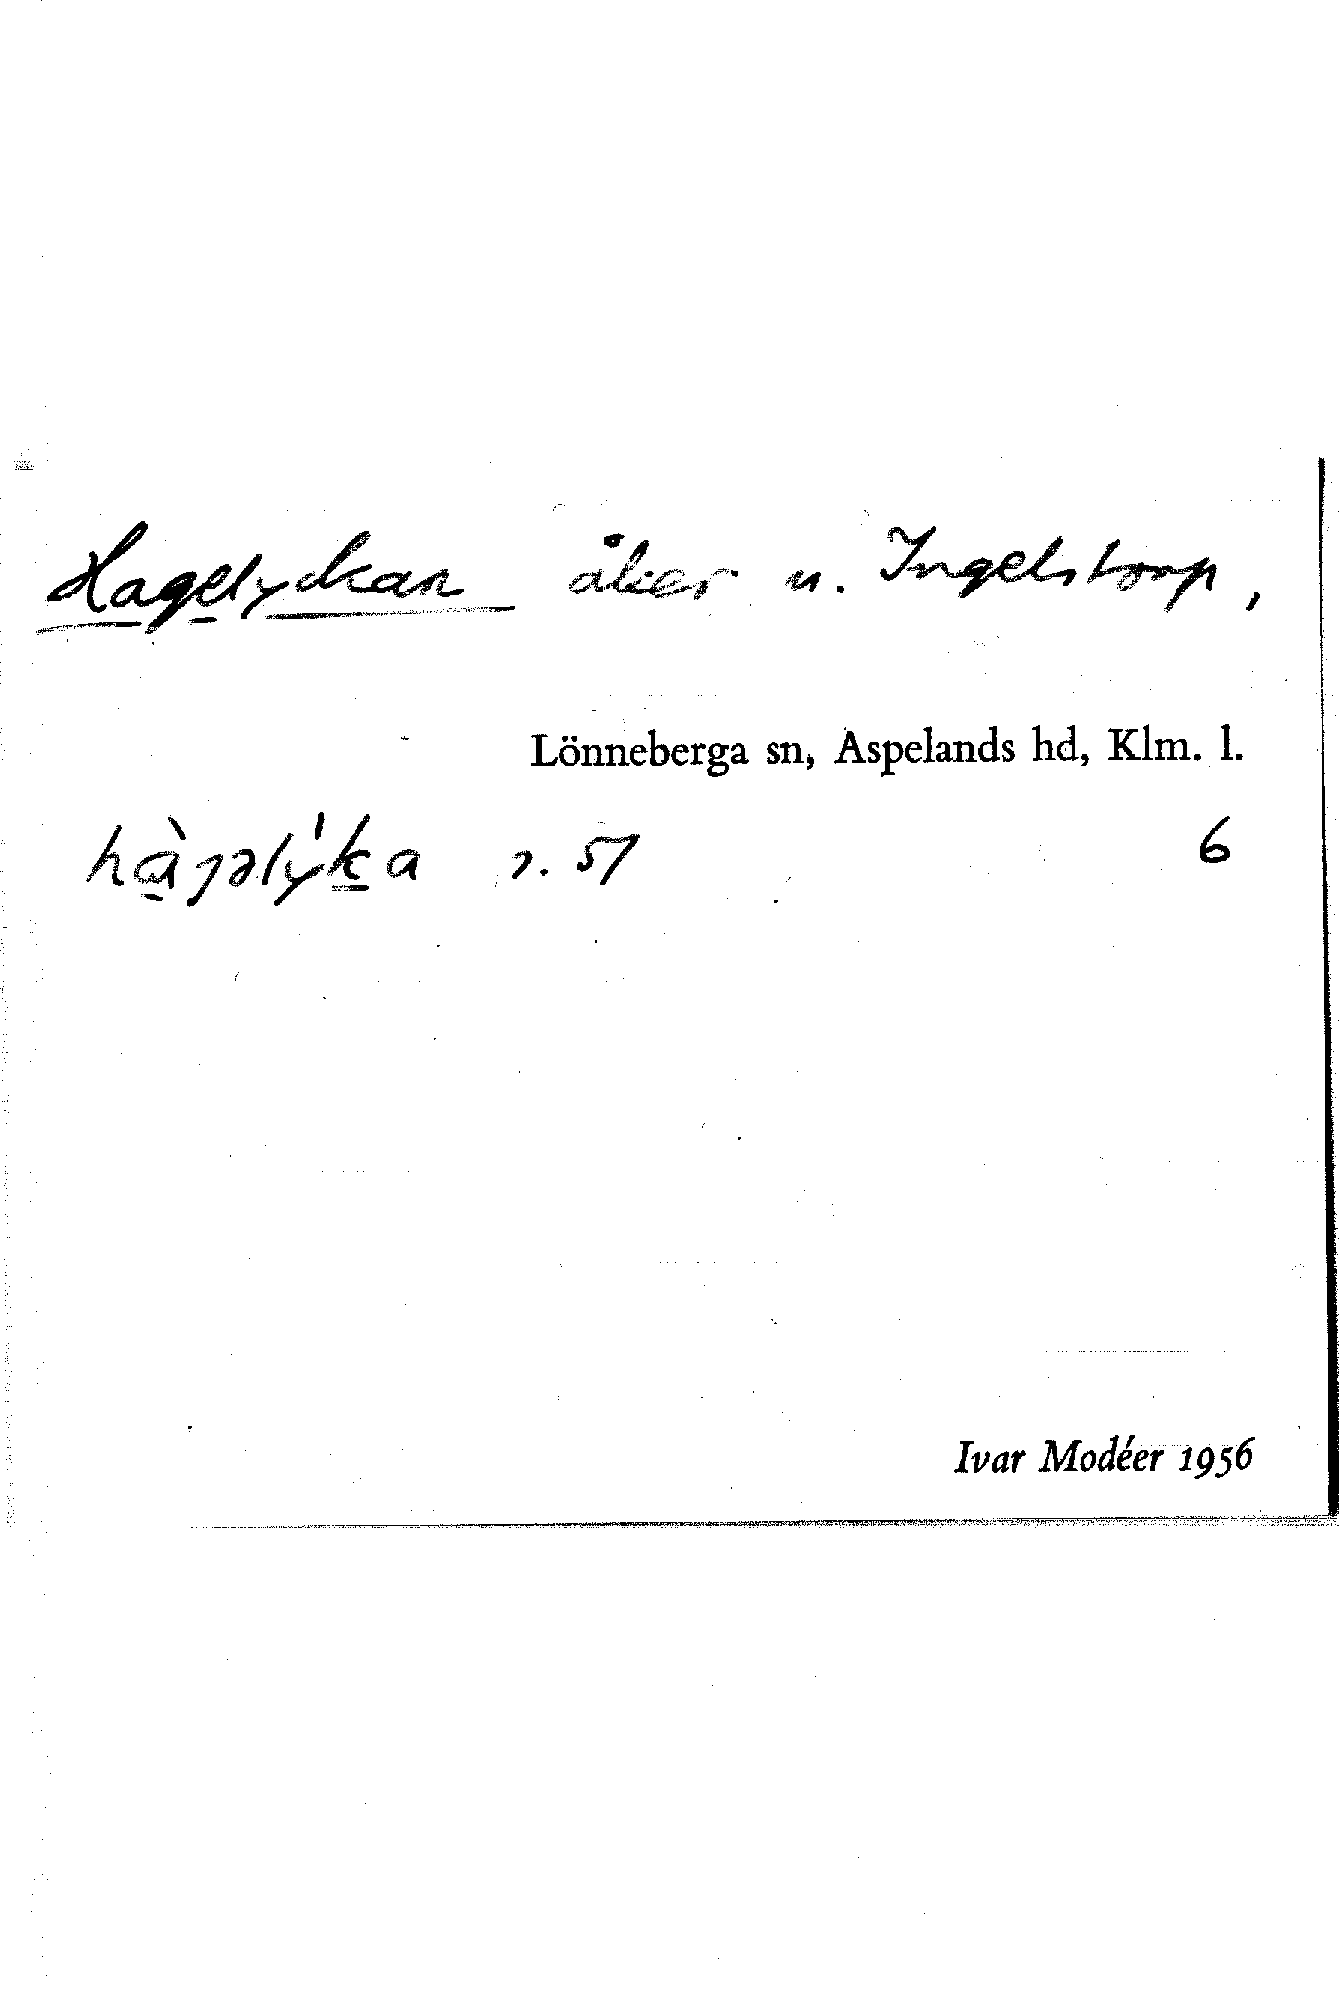 Hagelyckan åker u. Ingelstorp,
Lönneberga sn, Aspelands hd, Klm. l.
hàgəlýka 2. 51 6
Ivar Modéer 1956